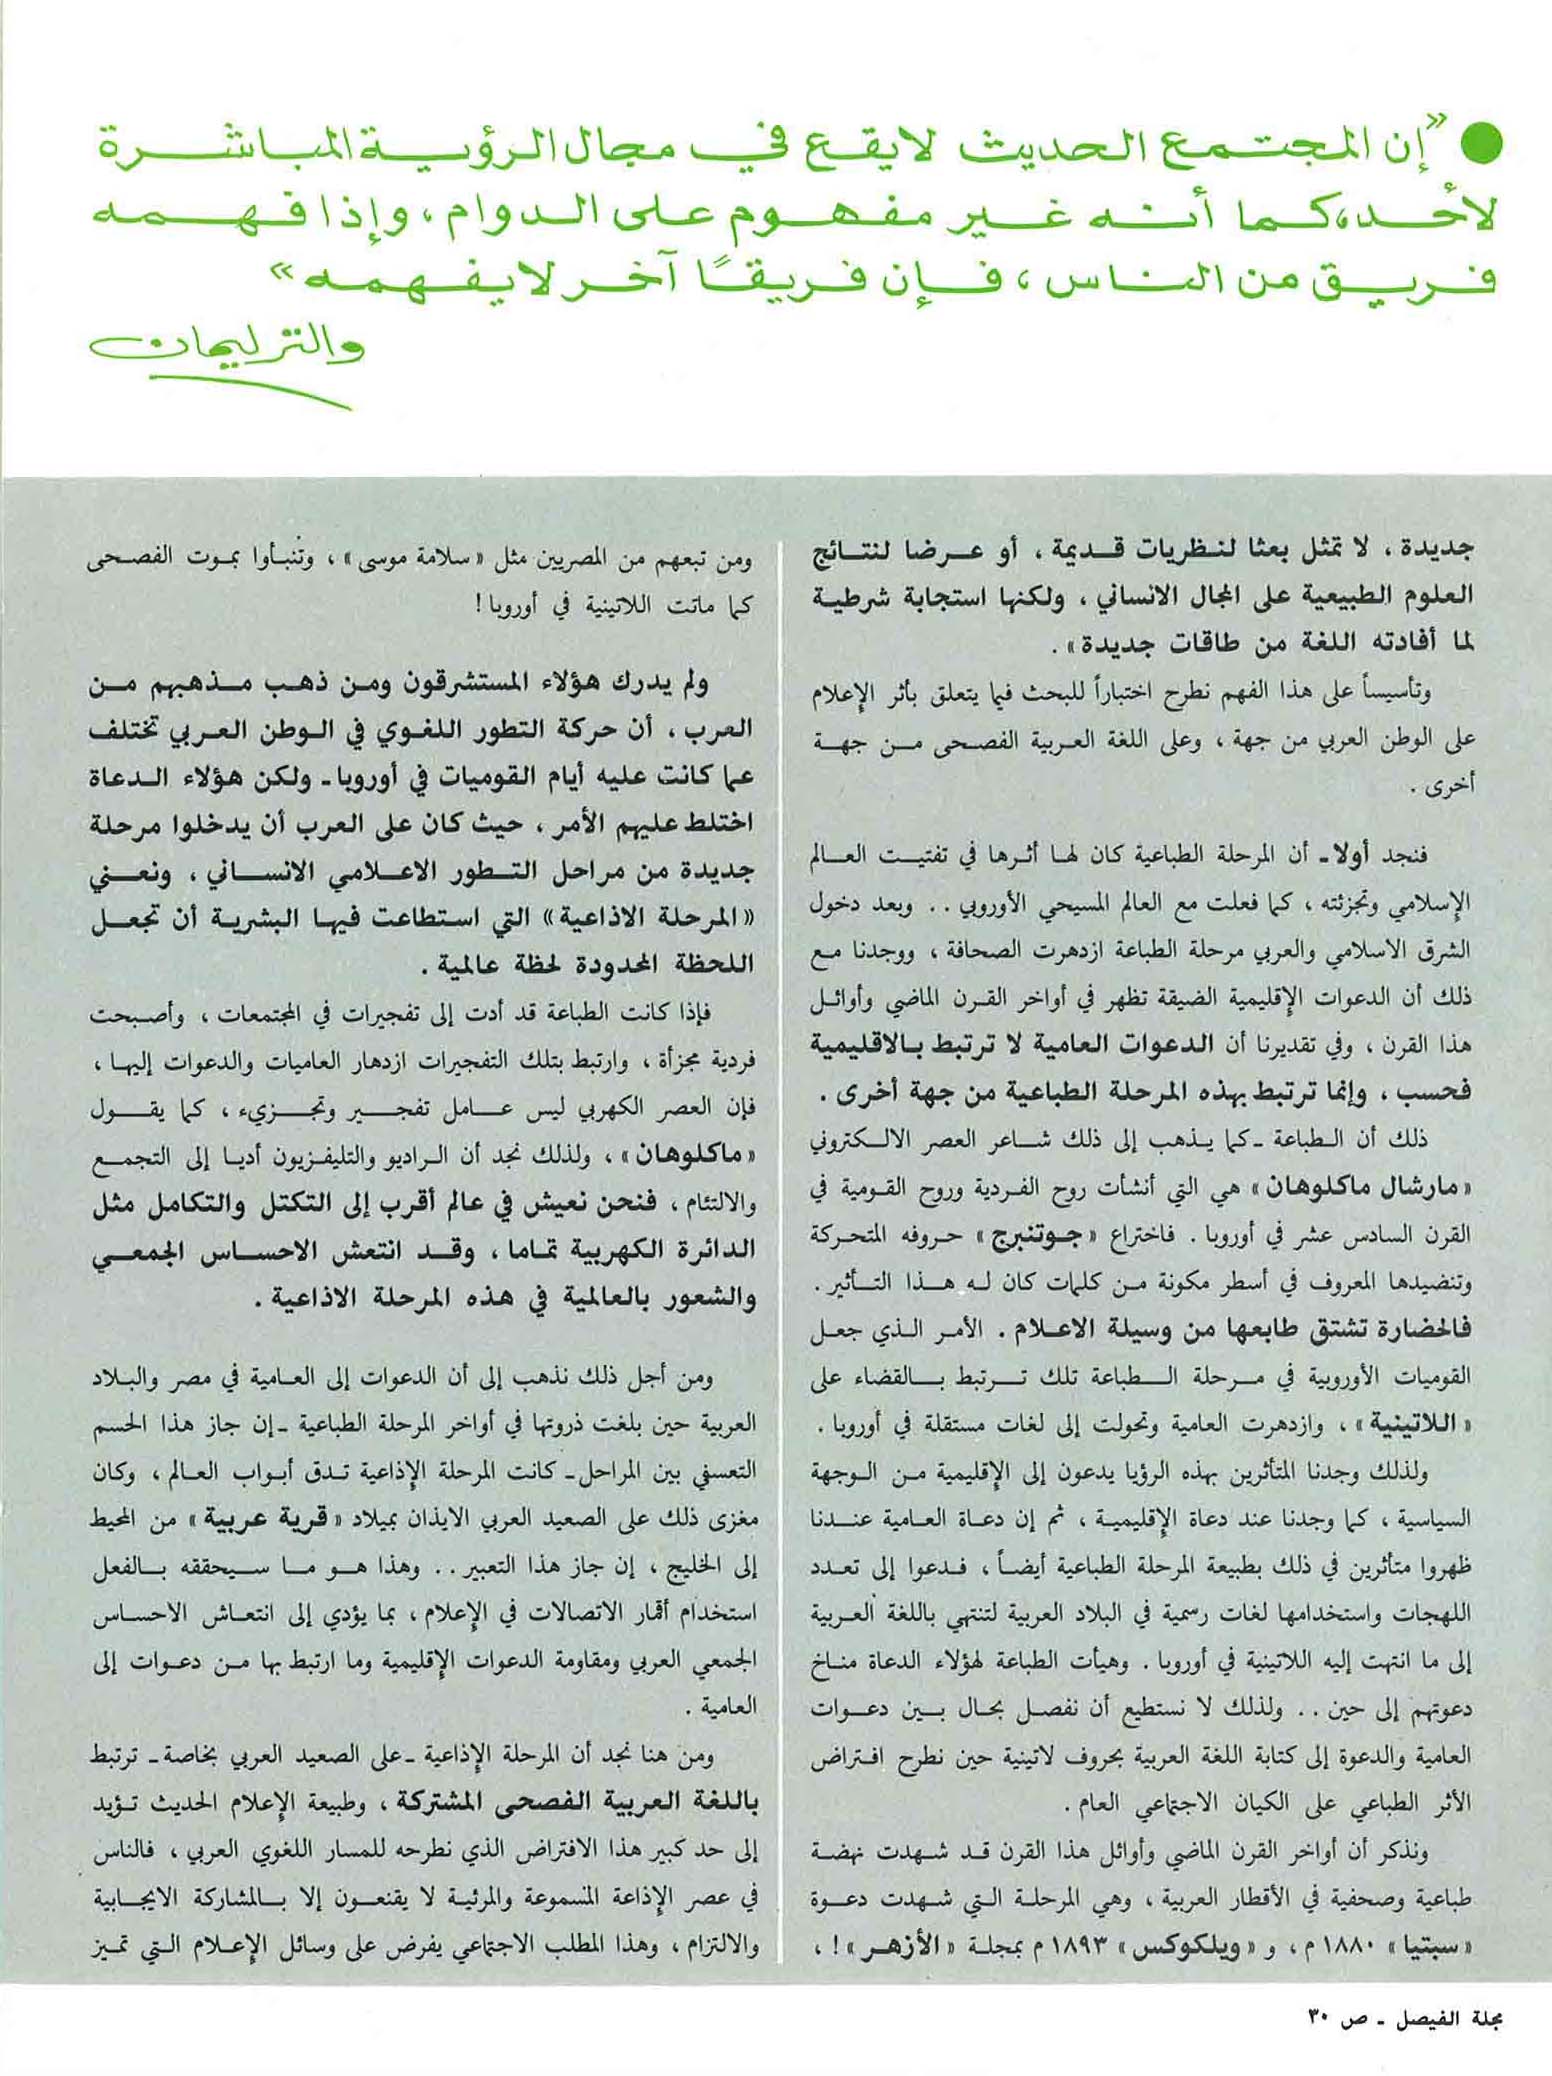 ● «إن المجتمع الحديث لا يقع في مجال الرؤية المباشرة
لأحد، كما أنه غير مفهوم على الدوام، وإذا فهمه
فريق من الناس، فإن فريقًا آخر لا يفهمه»
والتر ليمان
جديدة ، لا تمثل بعثا لنظريات قديمة ، أو عرضا لنتائج
العلوم الطبيعية على المجال الانساني ، ولكنها استجابة شرطية
لما أفادته اللغة من طاقات جديدة» .
وتأسيساً على هذا الفهم نطرح اختباراً للبحث فيما يتعلق بأثر الإعلام
على الوطن العربي من جهة ، وعلى اللغة العربية الفصحى من جهة
أخرى .
فنجد أولا ـ أن المرحلة الطباعية كان لها أثرها في تفتيت العالم
الإسلامي وتجزئته ، كما فعلت مع العالم المسيحي الأوروبي .. وبعد دخول
الشرق الاسلامي والعربي مرحلة الطباعة ازدهرت الصحافة ، ووجدنا مع
ذلك أن الدعوات الإقليمية الضيقة تظهر في أواخر القرن الماضي وأوائل
هذا القرن ، وفي تقديرنا أن الدعوات العامية لا ترتبط بالاقليمية
فحسب ، وإنما ترتبط بهذه المرحلة الطباعية من جهة أخرى .
ذلك أن الطباعة ـ كما يذهب إلى ذلك شاعر العصر الالكتروني
«مارشال ماكلوهان» هي التي أنشأت روح الفردية وروح القومية في
القرن السادس عشر في أوروبا . فاختراع «جوتنبرج» حروفه المتحركة
وتنضيدها المعروف في أسطر مكونة من كلمات كان له هذا التأثير .
فالحضارة تشتق طابعها من وسيلة الاعلام . الأمر الذي جعل
القوميات الأوروبية في مرحلة الطباعة تلك ترتبط بالقضاء على
«اللاتينية» ، وازدهرت العامية وتحولت إلى لغات مستقلة في أوروبا .
ولذلك وجدنا المتأثرين بهذه الرؤيا يدعون إلى الإقليمية من الوجهة
السياسية ، كما وجدنا عند دعاة الإقليمية ، ثم إن دعاة العامية عندنا
ظهروا متأثرين في ذلك بطبيعة المرحلة الطباعية أيضاً ، فدعوا إلى تعدد
اللهجات واستخدامها لغات رسمية في البلاد العربية لتنتهي باللغة العربية
إلى ما انتهت إليه اللاتينية في أوروبا . وهيأت الطباعة لهؤلاء الدعاة مناخ
دعوتهم إلى حين .. ولذلك لا نستطيع أن نفصل بحال بين دعوات
العامية والدعوة إلى كتابة اللغة العربية بحروف لاتينية حين نطرح افتراض
الأثر الطباعي على الكيان الاجتماعي العام .
ونذكر أن أواخر القرن الماضي وأوائل هذا القرن قد شهدت نهضة
طباعية وصحفية في الأقطار العربية ، وهي المرحلة التي شهدت دعوة
«سبتيا» ١٨٨٠ م ، و «ويلكوكس» ١٨٩٣ م بمجلة «الأزهر» ! ،
ومن تبعهم من المصريين مثل «سلامة موسى» ، وتنبأوا بموت الفصحى
كما ماتت اللاتينية في أوروبا !
ولم يدرك هؤلاء المستشرقون ومن ذهب مذهبهم من
العرب ، أن حركة التطور اللغوي في الوطن العربي تختلف
عما كانت عليه أيام القوميات في أوروبا ـ ولكن هؤلاء الدعاة
اختلط عليهم الأمر ، حيث كان على العرب أن يدخلوا مرحلة
جديدة من مراحل التطور الاعلامي الانساني ، ونعني
«المرحلة الاذاعية» التي استطاعت فيها البشرية أن تجعل
اللحظة المحدودة لحظة عالمية .
فإذا كانت الطباعة قد أدت إلى تفجيرات في المجتمعات ، وأصبحت
فردية مجزأة ، وارتبط بتلك التفجيرات ازدهار العاميات والدعوات إليها ،
فإن العصر الكهربي ليس عامل تفجير وتجزيء ، كما يقول
«ماكلوهان» ، ولذلك نجد أن الراديو والتليفزيون أديا إلى التجمع
والالتئام ، فنحن نعيش في عالم أقرب إلى التكتل والتكامل مثل
الدائرة الكهربية تماما ، وقد انتعش الاحساس الجمعي
والشعور بالعالمية في هذه المرحلة الاذاعية .
ومن أجل ذلك نذهب إلى أن الدعوات إلى العامية في مصر والبلاد
العربية حين بلغت ذروتها في أواخر المرحلة الطباعية ـ إن جاز هذا الحسم
التعسفي بين المراحل ـ كانت المرحلة الإذاعية تدق أبواب العالم ، وكان
مغزى ذلك على الصعيد العربي الايذان بميلاد «قرية عربية» من المحيط
إلى الخليج ، إن جاز هذا التعبير .. وهذا هو ما سيحققه بالفعل
استخدام أقمار الاتصالات في الإعلام ، بما يؤدي إلى انتعاش الاحساس
الجمعي العربي ومقاومة الدعوات الإقليمية وما ارتبط بها من دعوات إلى
العامية .
ومن هنا نجد أن المرحلة الإذاعية ـ على الصعيد العربي بخاصة ـ ترتبط
باللغة العربية الفصحى المشتركة ، وطبيعة الإعلام الحديث تؤيد
إلى حد كبير هذا الافتراض الذي نطرحه للمسار اللغوي العربي ، فالناس
في عصر الإذاعة المسموعة والمرئية لا يقنعون إلا بالمشاركة الايجابية
والالتزام ، وهذا المطلب الاجتماعي يفرض على وسائل الإعلام التي تميز
مجلة الفيصل ـ ص ٣٠